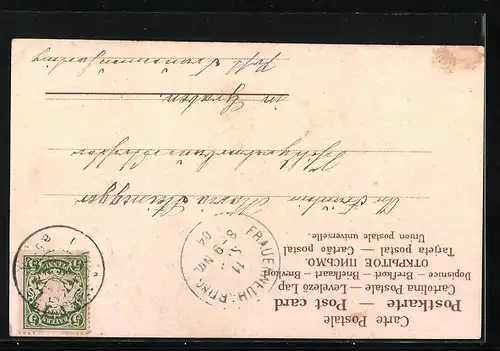 Carte Postale
Postkarte — Post card
Cartolina Postale — Levelező Lap
Dopisnice — Brefkort — Briefkaart — Brevkort
ОТКРЫТОЕ ПИСЬМО.
Tarjeta postal — Cartão postal
Union postale universelle.
FRAUENNEUHARTING
11
NM 8-9
04
5 5
BAYERN
Fräulein Maria
in Graben.
Post Frauenneuharting